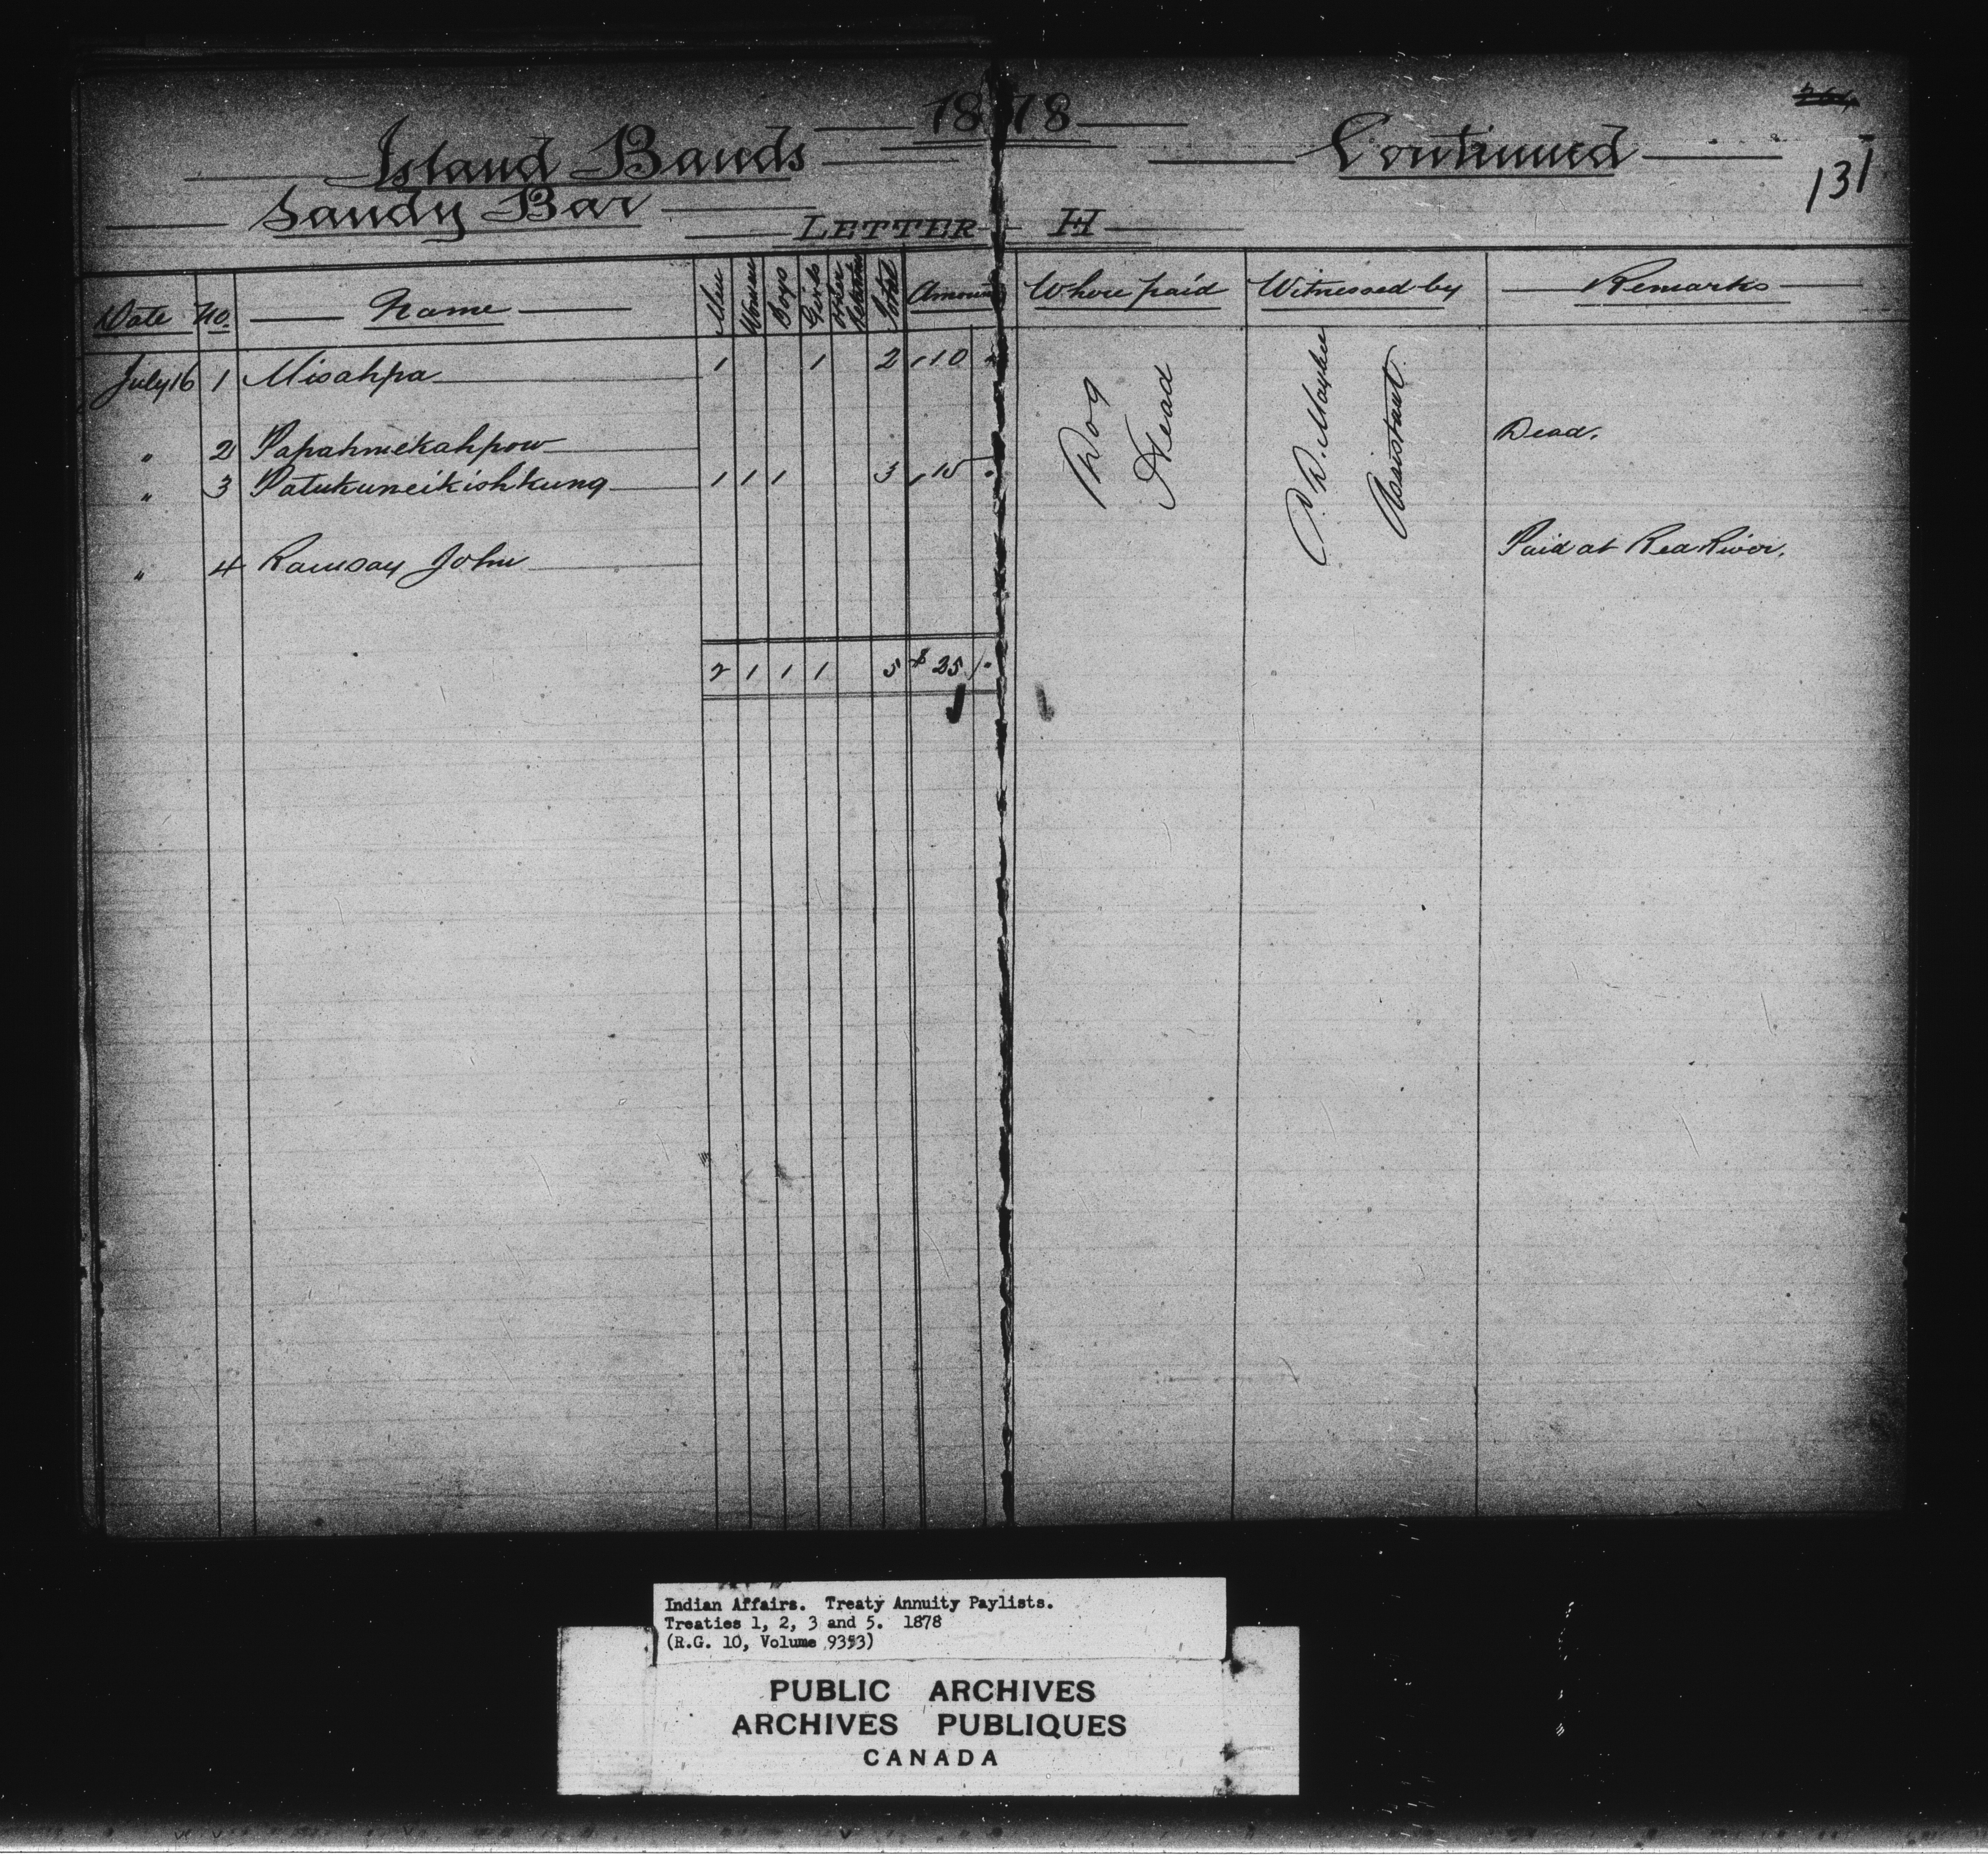 1878
Island Bands Continued
131
Sandy Bar
LETTER H
Date No. Name Men Women Boys Girls Other Relatives Total Amount Where paid Witnessed by Remarks
July 16 1 Misahpa 1 1 2 10
" 2 Papahmekahpow Dead.
" 3 Patukuneikishkung 1 1 1 3 15
" 4 Ramsay John Paid at Red River.
Dog Head
Assistant
2 1 1 1 5 $25
Indian Affairs. Treaty Annuity Paylists.
Treaties 1, 2, 3 and 5. 1878
(R.G. 10, Volume 9353)
PUBLIC ARCHIVES
ARCHIVES PUBLIQUES
CANADA